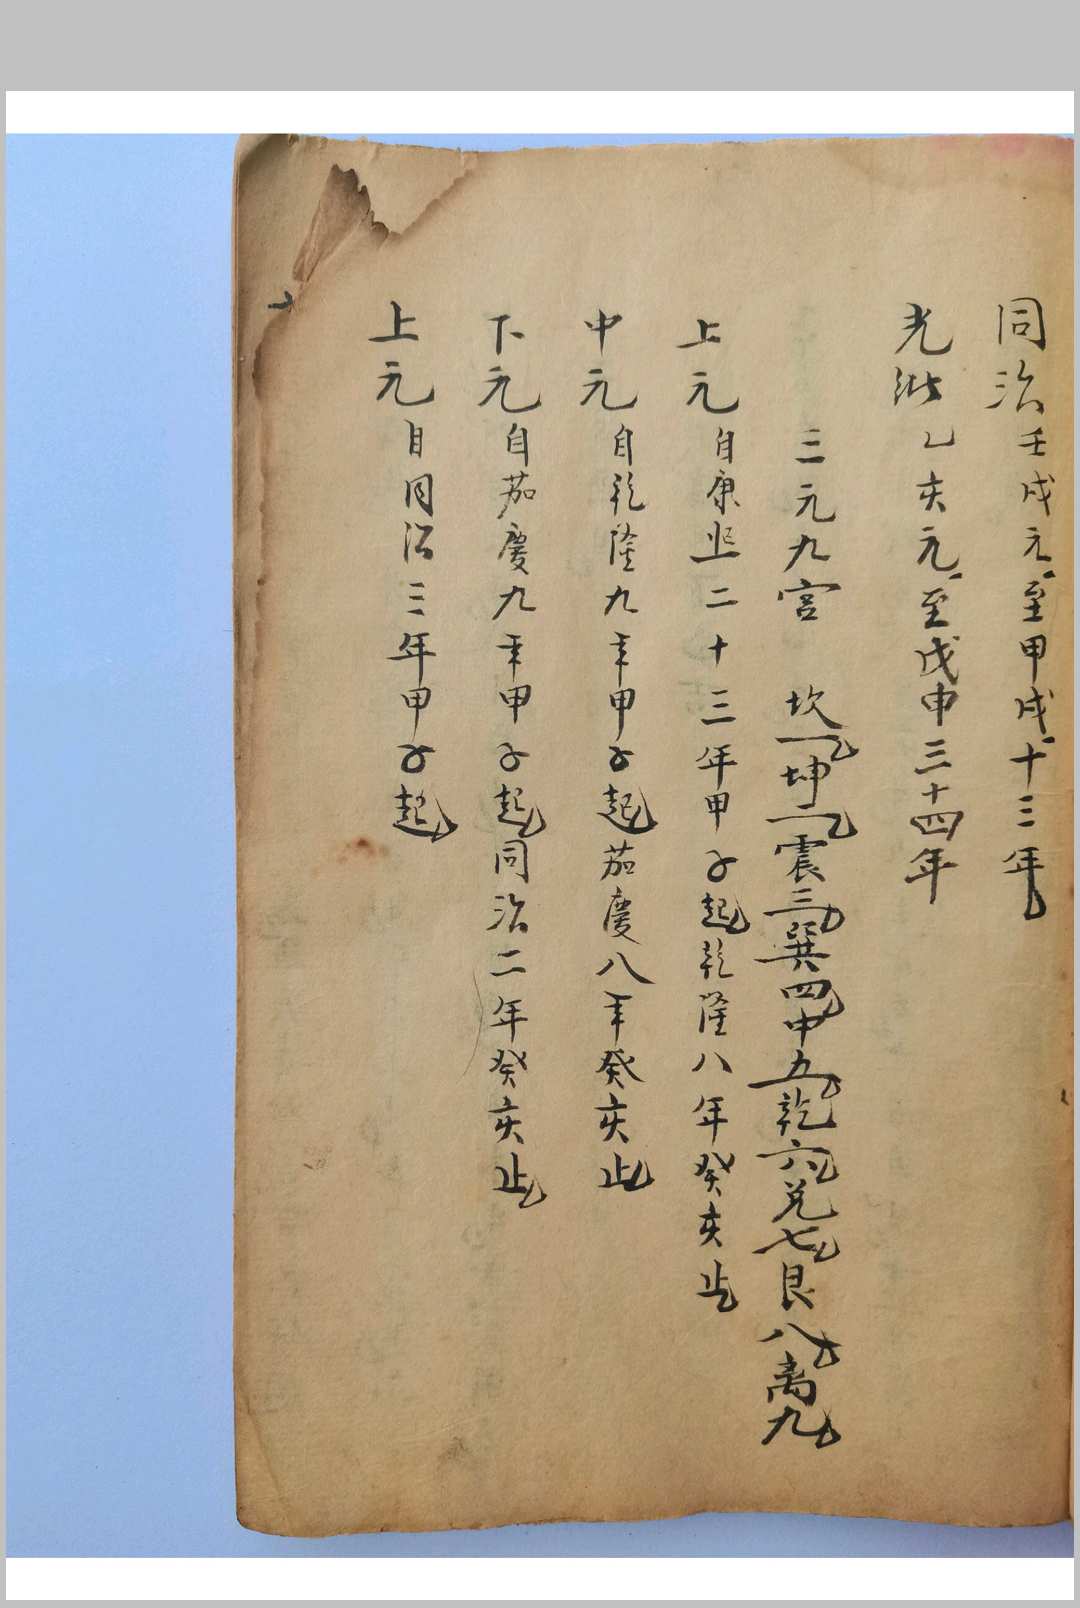 同治壬戌元至甲戌十三年
光緒乙亥元至戊申三十四年
三元九宮 坎一坤二震三巽四中五乾六兌七艮八离九
上元自康熙二十三年甲子起乾隆八年癸亥止
中元自乾隆九年甲子起茄慶八年癸亥止
下元自茄慶九年甲子起同治二年癸亥止
上元自同治三年甲子起